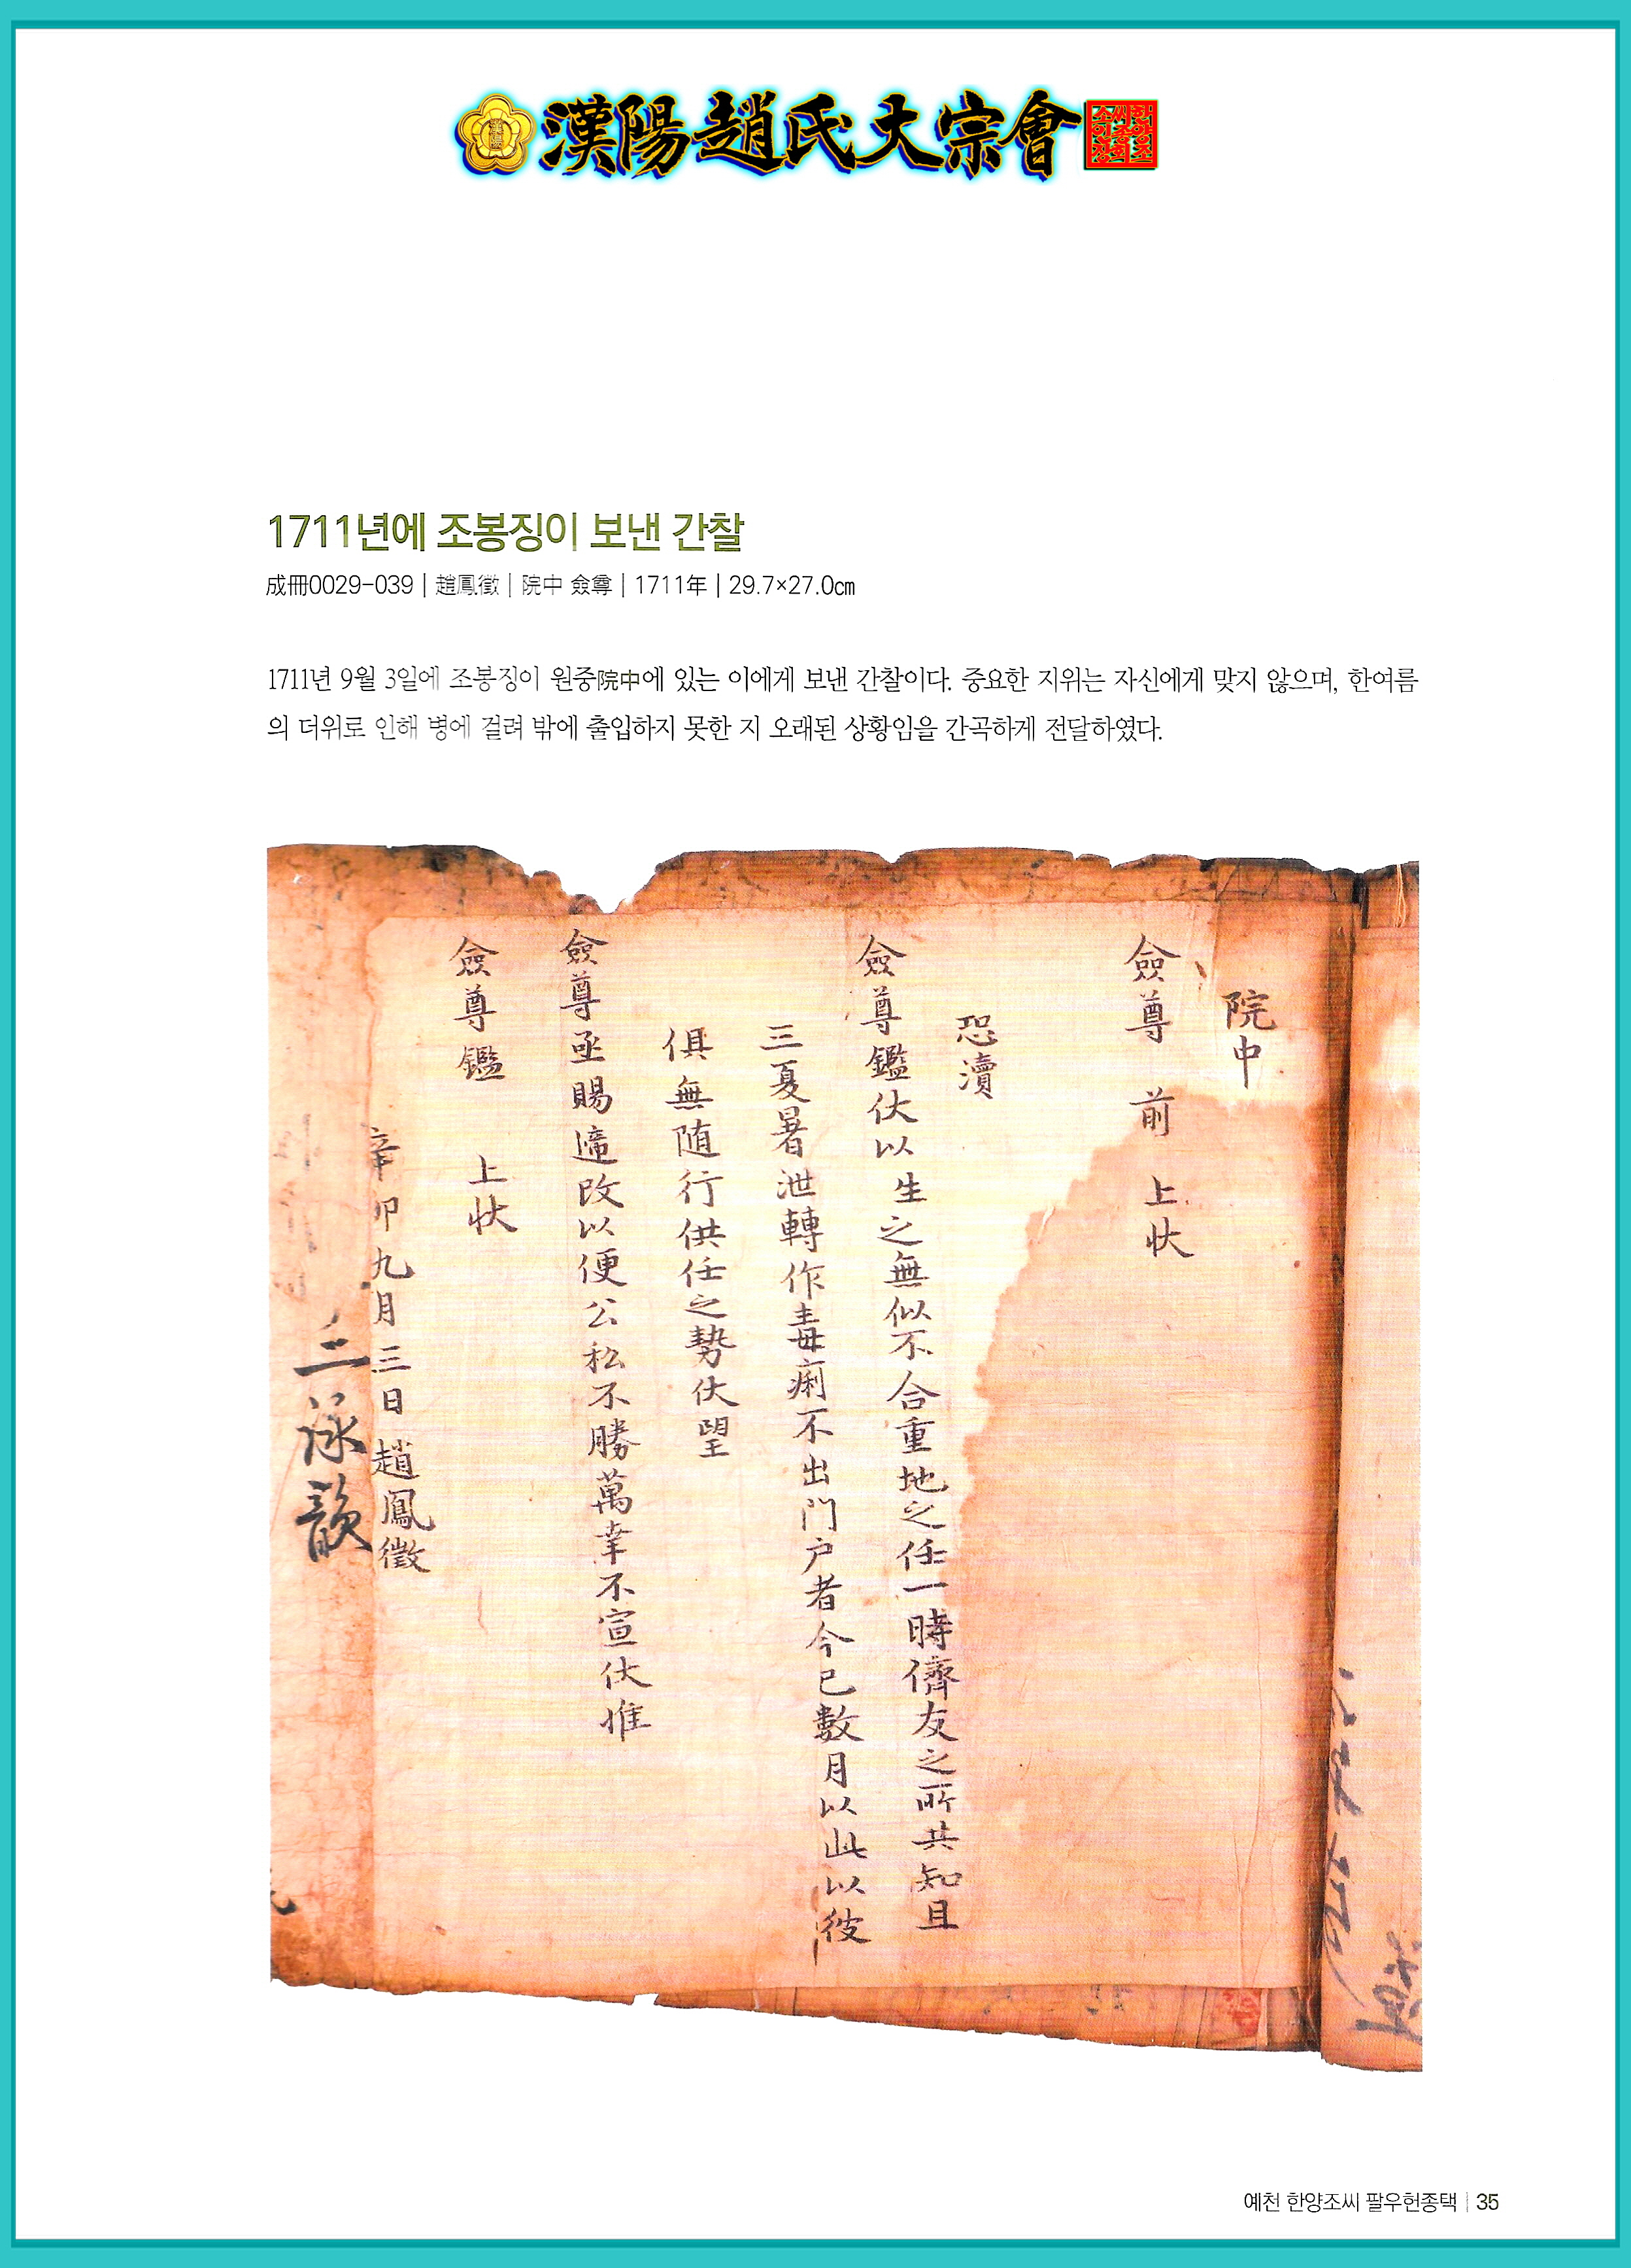 漢陽趙氏大宗會
1711년에 조봉징이 보낸 간찰
成冊0029-039 | 趙鳳徵 | 院中 僉尊 | 1711年 | 29.7×27.0㎝
1711년 9월 3일에 조봉징이 원중院中에 있는 이에게 보낸 간찰이다. 중요한 지위는 자신에게 맞지 않으며, 한여름
의 더위로 인해 병에 걸려 밖에 출입하지 못한 지 오래된 상황임을 간곡하게 전달하였다.
院中
僉尊 前 上狀
恐瀆
僉尊鑑伏以生之無似不合重地之任一時儕友之所共知且
三夏暑泄轉作毒痢不出门户者今已數月以此以彼
俱無随行供任之勢伏望
僉尊亟賜遞改以便公私不勝萬幸不宣伏惟
僉尊鑑 上狀
辛卯九月三日趙鳳徵
예천 한양조씨 팔우헌종택 | 35